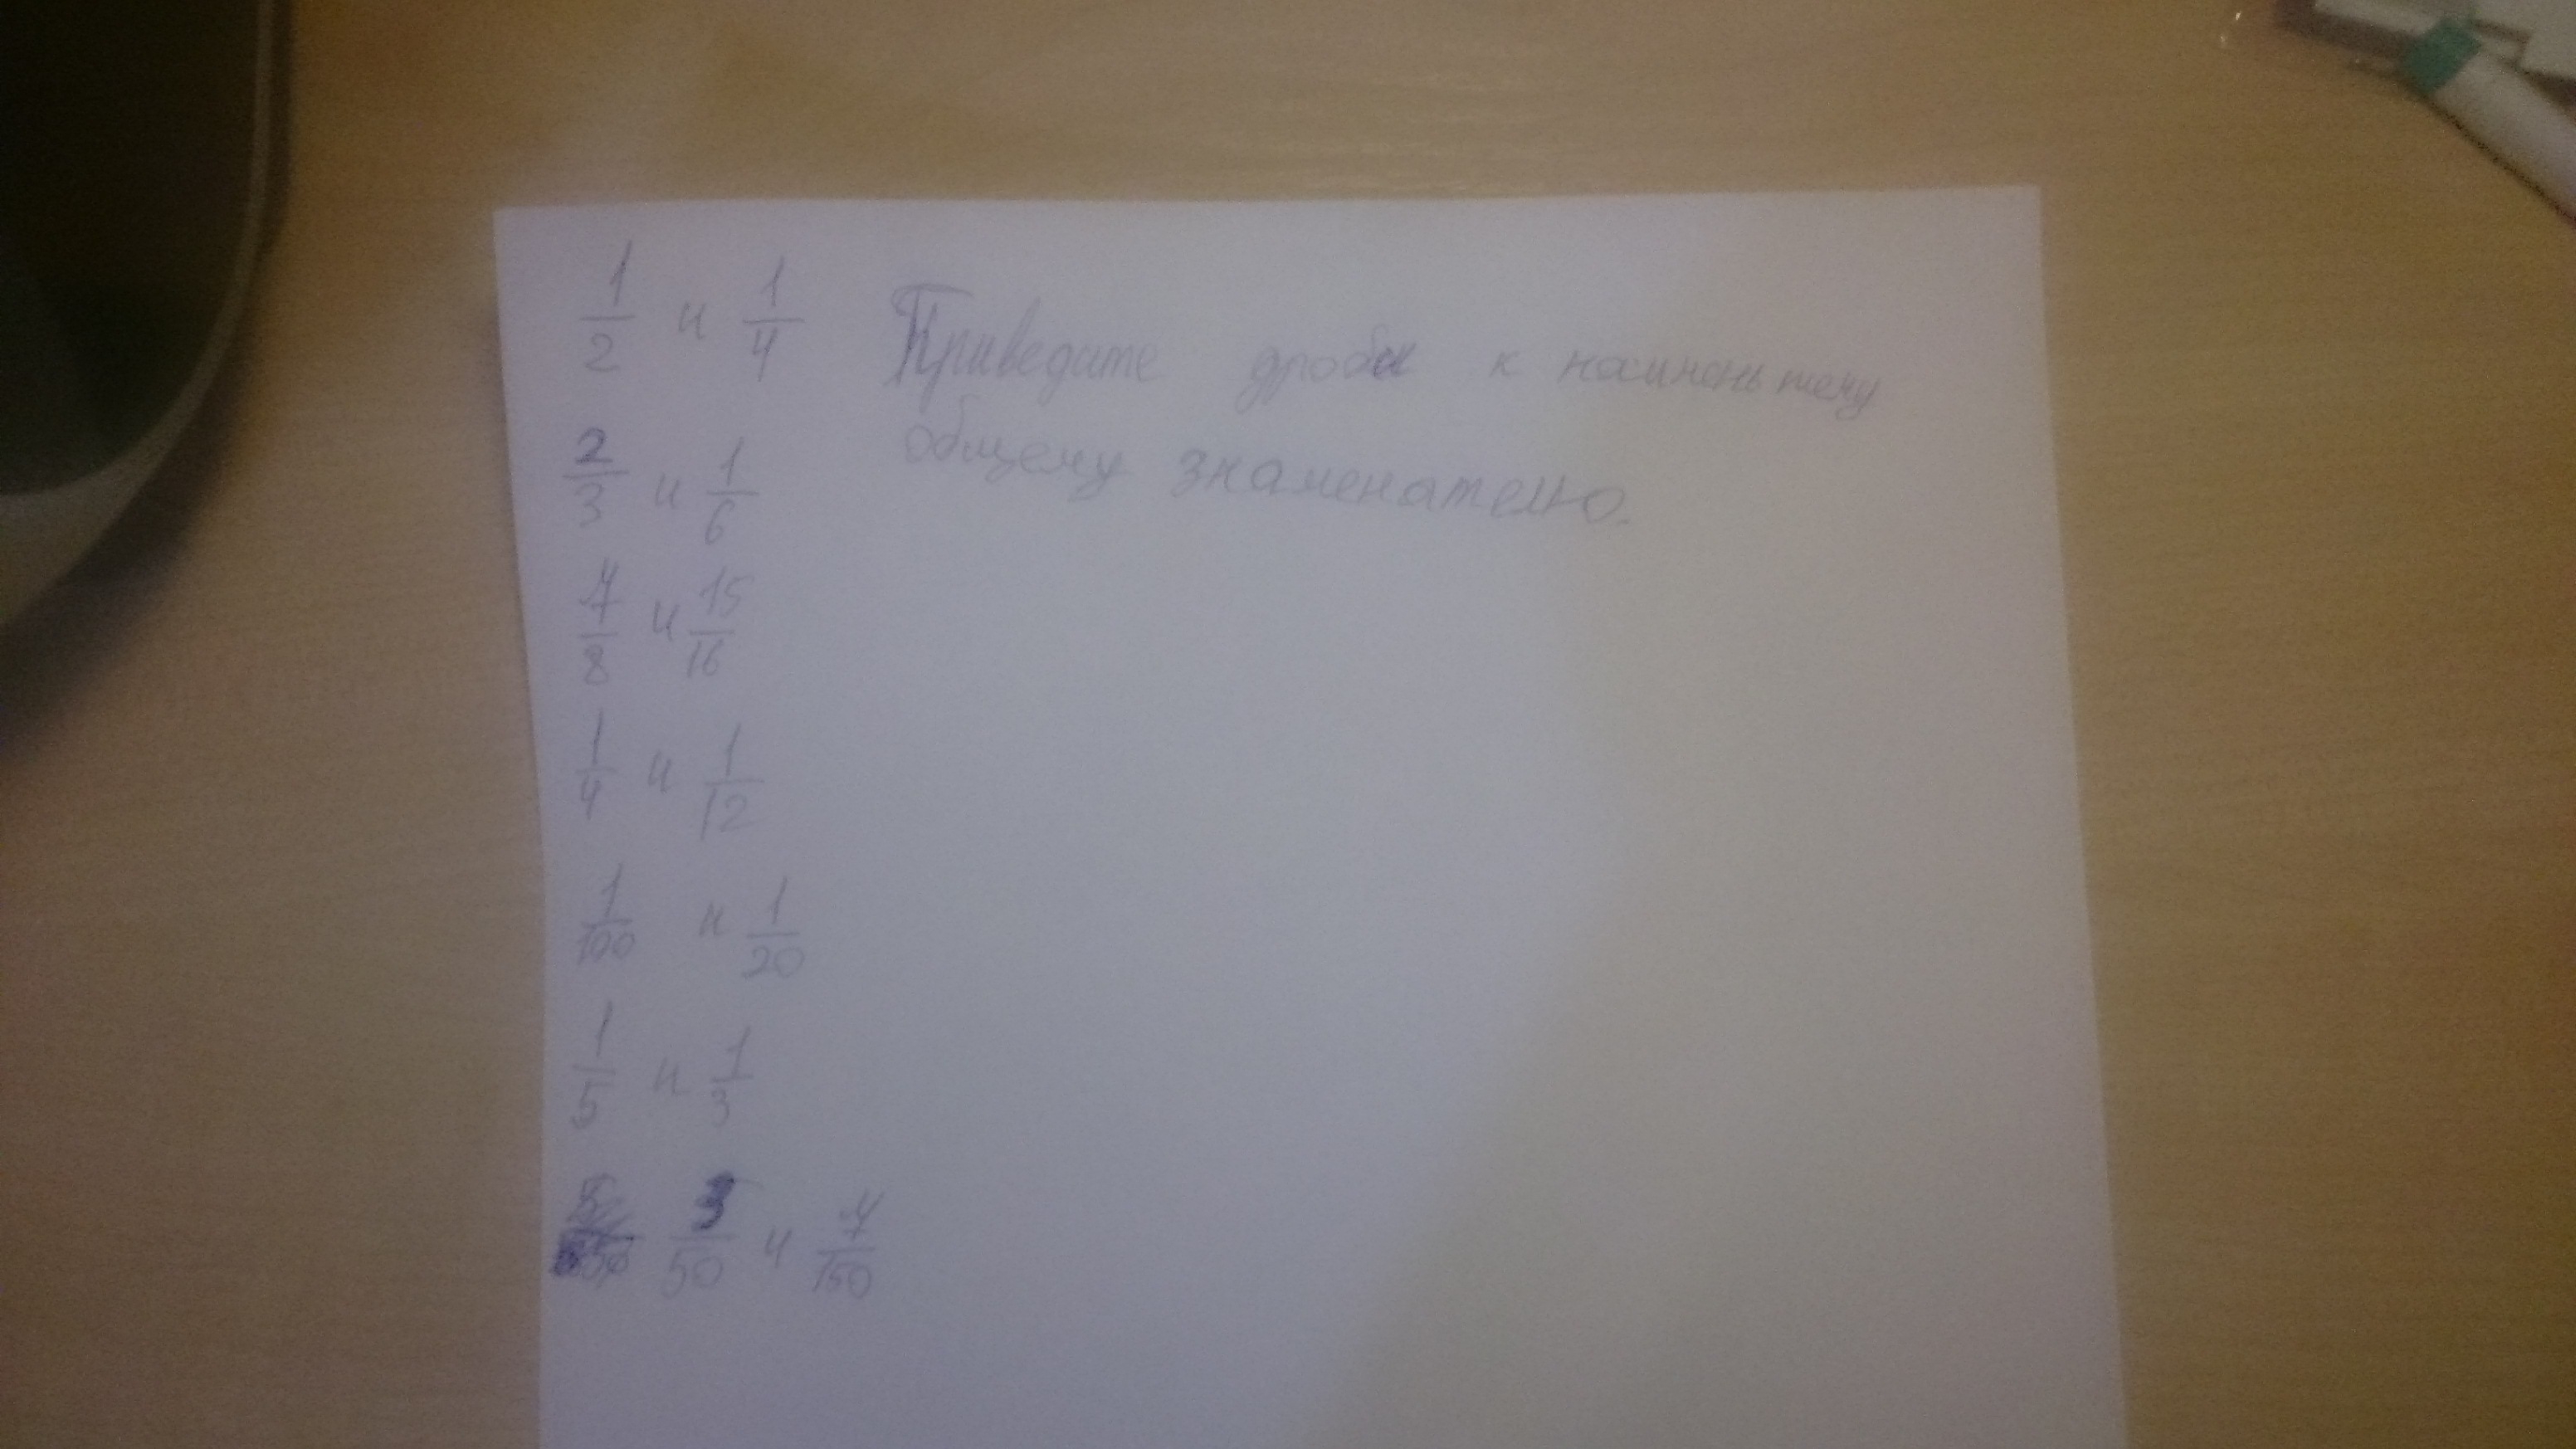 1/2 и 1/4 Приведите дроби к наименьшему
общему знаменателю.
2/3 и 1/6
7/8 и 15/16
1/4 и 1/12
1/100 и 1/20
1/5 и 1/3
3/50 и 7/150